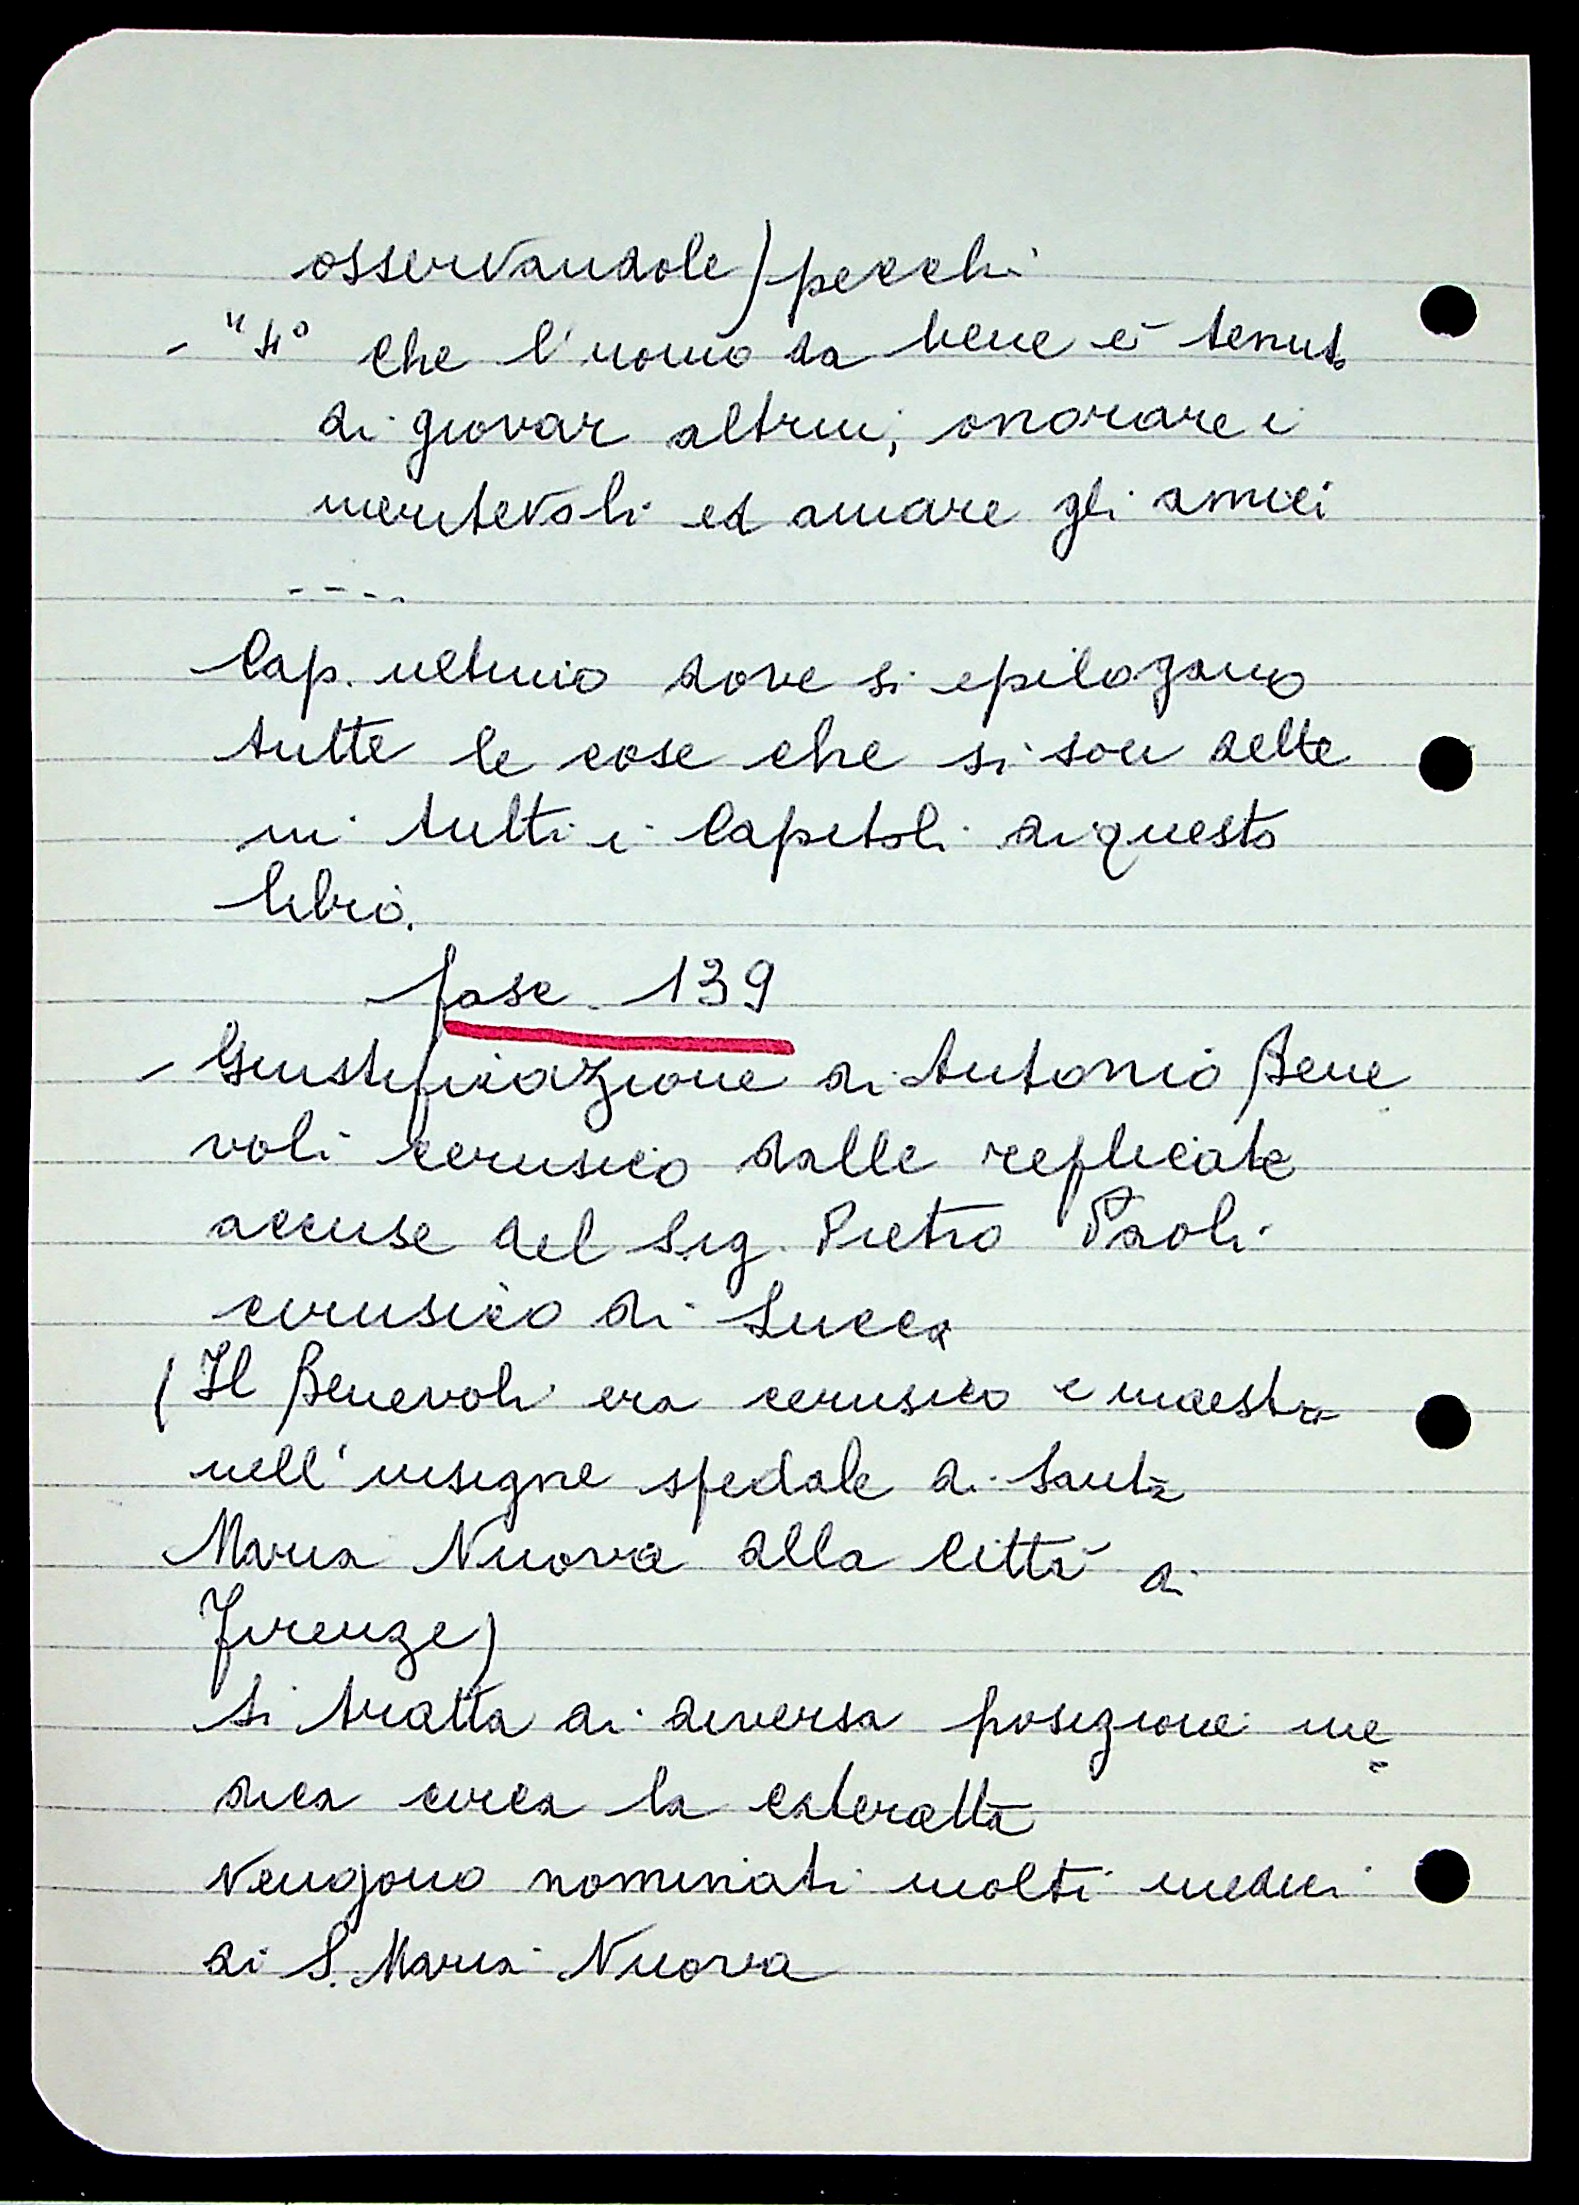 osservandole) pecchi
- " 4° che l'uomo da bene è tenuto
di giovar altrui, onorare i
meritevoli ed amare gli amici
----
Cap. ultimo dove si epilogano
tutte le cose che si son dette
in tutti i Capitoli di questo
libro.
fasc. 139
- Giustificazione di Antonio Bene
voli cerusico dalle replicate
accuse del Sig. Pietro Paoli
cerusico di Lucca
(Il Benevoli era cerusico e maestro
nell'insigne spedale di Santa
Maria Nuova alla città di
Firenze)
Si tratta di diversa posizione me=
dica circa la cateratta
Vengono nominati molti medici
di S. Maria Nuova